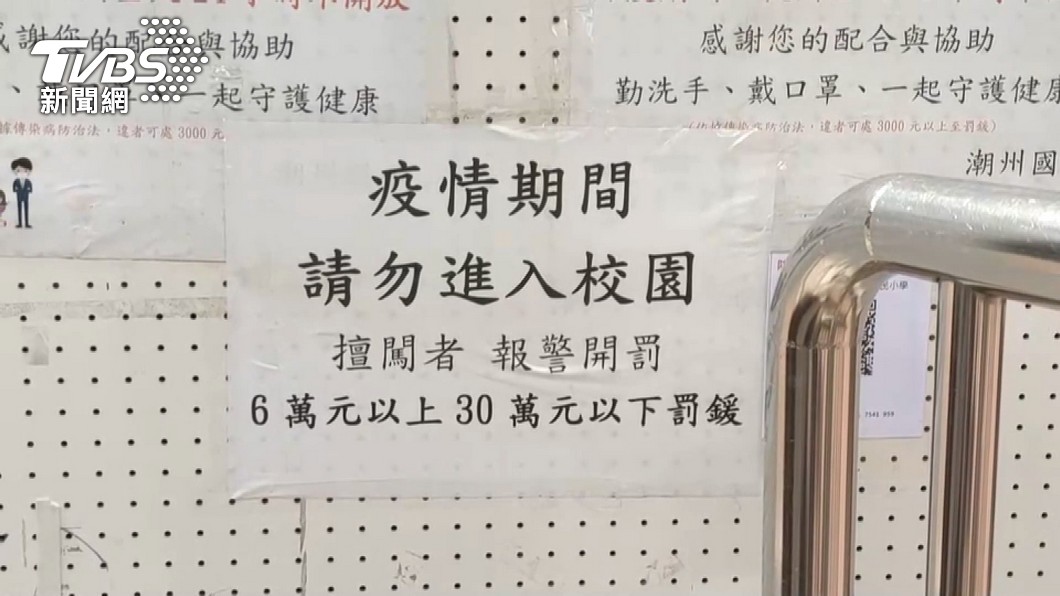 TVBS
新聞網
感謝您的配合與協助
、一起守護健康
傳染病防治法,違者可處3000元
感謝您的配合與協助
勤洗手、戴口罩、一起守護健康
防治法,違者可處3000元以上至罰鍰)
潮州國
疫情期間
請勿進入校園
擅闖者 報警開罰
6萬元以上30萬元以下罰鍰
小學
7541 959